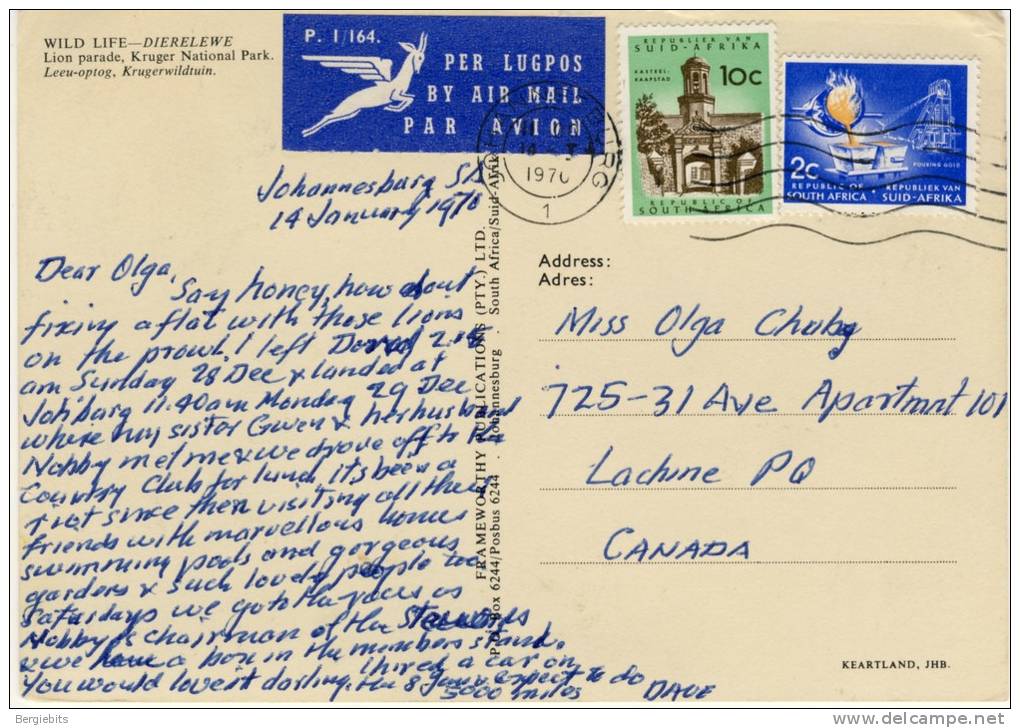 WILD LIFE—DIERELEWE
Lion parade, Kruger National Park.
Leeu-optog, Krugerwildtuin.
P. 1/164.
PER LUGPOS
BY AIR MAIL
PAR AVION
REPUBLIEK VAN
SUID-AFRIKA
KASTEEL-
KAAPSTAD
10c
REPUBLIC OF
SOUTH AFRICA
POURING GOLD
2c
REPUBLIC OF
SOUTH AFRICA
REPUBLIEK VAN
SUID-AFRIKA
1970
1
Johannesburg SA
14 January 1970
Dear Olga,
Say honey, how about
fixing a flat with those lions
on the prowl. I left Dorval 2.15
am Sunday 28 Dec & landed at
Jo'burg 11.40am Monday 29 Dec
where my sister Gwen & her husband
Nobby met me & we drove off to the
Country Club for lunch, it's been a
riot since then visiting all their
friends with marvellous homes
swimming pools and gorgeous
gardens & such lovely people too
Saturdays we go to the races as
Nobby is chairman of the Stewards
& we have a box in the members stand.
You would love it darling. I hired a car on
the 8 Jan & expect to do
5000 miles DAVE
FRAMEWORTHY PUBLICATIONS (PTY.) LTD.
P.O. Box 6244/Posbus 6244 . Johannesburg . South Africa/Suid-Afrika
Address:
Adres:
Miss Olga Chuby
725-31 Ave Apartmnt 101
Lachine PQ
CANADA
KEARTLAND, JHB.
Bergiebits
www.delcampe.net